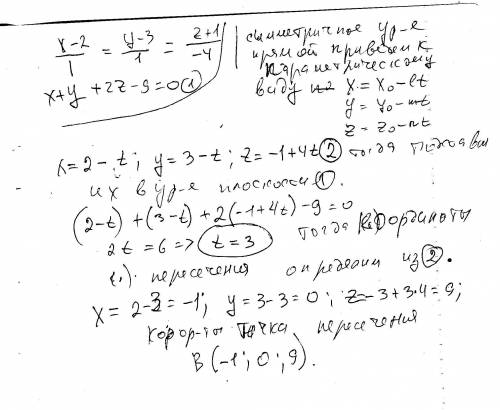 (x-2)/1 = (y-3)/1 = (z+1)/-4
x+y+2z-9=0 (1)
симметричное ур-е
прямой приведем к
параметрическому
виду
x = x₀-lt
y = y₀-mt
z = z₀-nt
x=2-t; y=3-t; z=-1+4t (2) тогда
их в ур-е плоскости (1).
(2-t)+(3-t)+2(-1+4t)-9=0
2t=6 => t=3 тогда координаты
(.) пересечения определим из (2).
x=2-3=-1; y=3-3=0; z=-3+3·4=9;
коорд-ты точка пересечения
B(-1; 0; 9).